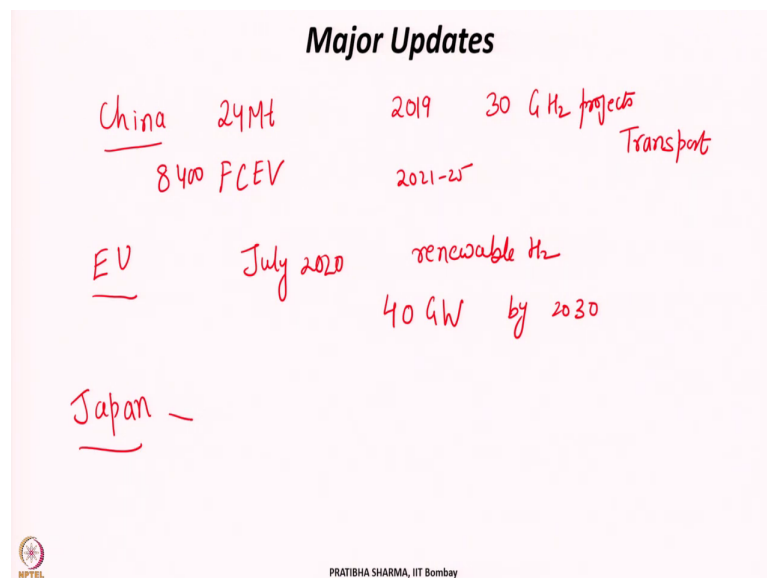 Major Updates
China 24Mt 2019 30 GH2 projects
Transport
8400 FCEV 2021-25
EU July 2020 renewable H2
40 GW by 2030
Japan –
NPTEL
PRATIBHA SHARMA, IIT Bombay